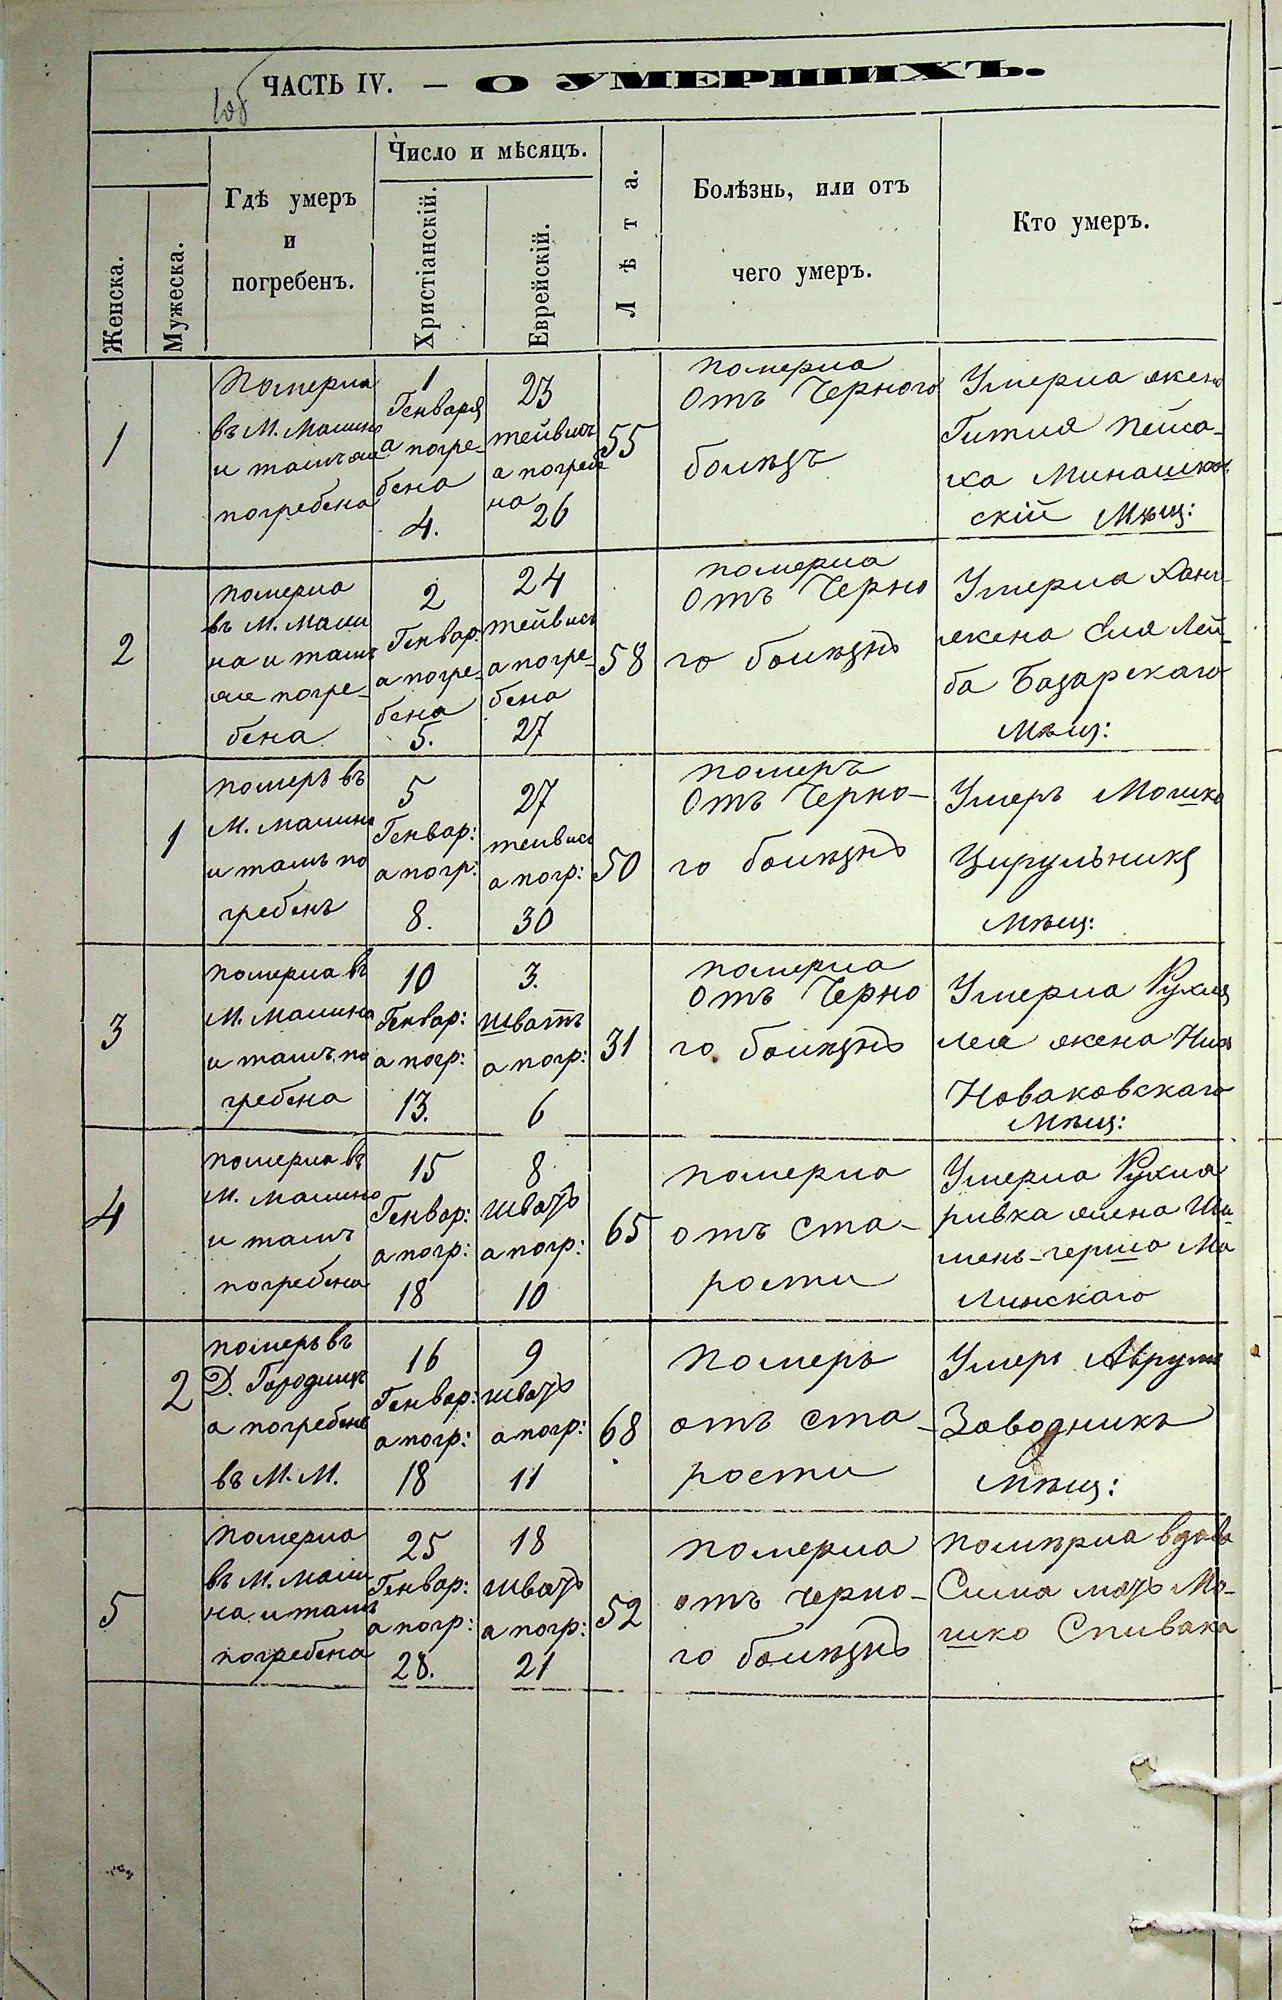 ЧАСТЬ IV. — О УМЕРШИХЪ.
Женска.
Мужеска.
Гдѣ умеръ
и
погребенъ.
Число и мѣсяцъ.
Христіанскій.
Еврейскій.
Лѣта.
Болѣзнь, или отъ
чего умеръ.
Кто умеръ.
1
Померла
въ М. Малино
и тамъ же
погребена
1
Генваря
а погре-
бена
4.
23
тейвисъ
а погребе
на
26
55
померла
Отъ Черного
болѣзъ
Умерла жена
Гитля Пейса-
ха Минашков
скій Мѣщ:
2
померла
въ М. Мали
на и тамъ
же погре-
бена
2
Генвар:
а погре-
бена
5.
24
тейвисъ
а погре-
бена
27
58
померла
Отъ Черно
го болѣзнь
Умерла Хана
жена Еля Лей-
ба Базарскаго
Мѣщ:
1
померъ въ
М. Малина
и тамъ по
гребенъ
5
Генвар:
а погр:
8.
27
тейвисъ
а погр:
30
50
померъ
Отъ Черно-
го болѣзнь
Умеръ Мошко
Цирульникъ
Мѣщ:
3
померла въ
М. Малина
и тамъ по
гребена
10
Генвар:
а погр:
13.
3.
Шватъ
а погр:
6
31
померла
Отъ Черно
го болѣзнь
Умерла Рухля
Лея жена
Новаковскаго
Мѣщ:
4
померла въ
М. Малино
и тамъ
погребена
15
Генвар:
а погр:
18
8
Шватъ
а погр:
10
65
померла
отъ ста-
рости
Умерла Рухля
ривка жена
герша Ма
линскаго
2
померъ въ
Д. Городище
а погребенъ
въ М. М.
16
Генвар:
а погр:
18
9
Шватъ
а погр:
11
68
померъ
отъ ста-
рости
Умеръ Аврумъ
Заводникъ
Мѣщ:
5
померла
въ М. Мали-
на и тамъ
погребена
25
Генвар:
а погр:
28.
18
Шватъ
а погр:
21
52
померла
отъ черно-
го болѣзнь
помѣрла вдова
Сима мать Мо-
шко Спивака